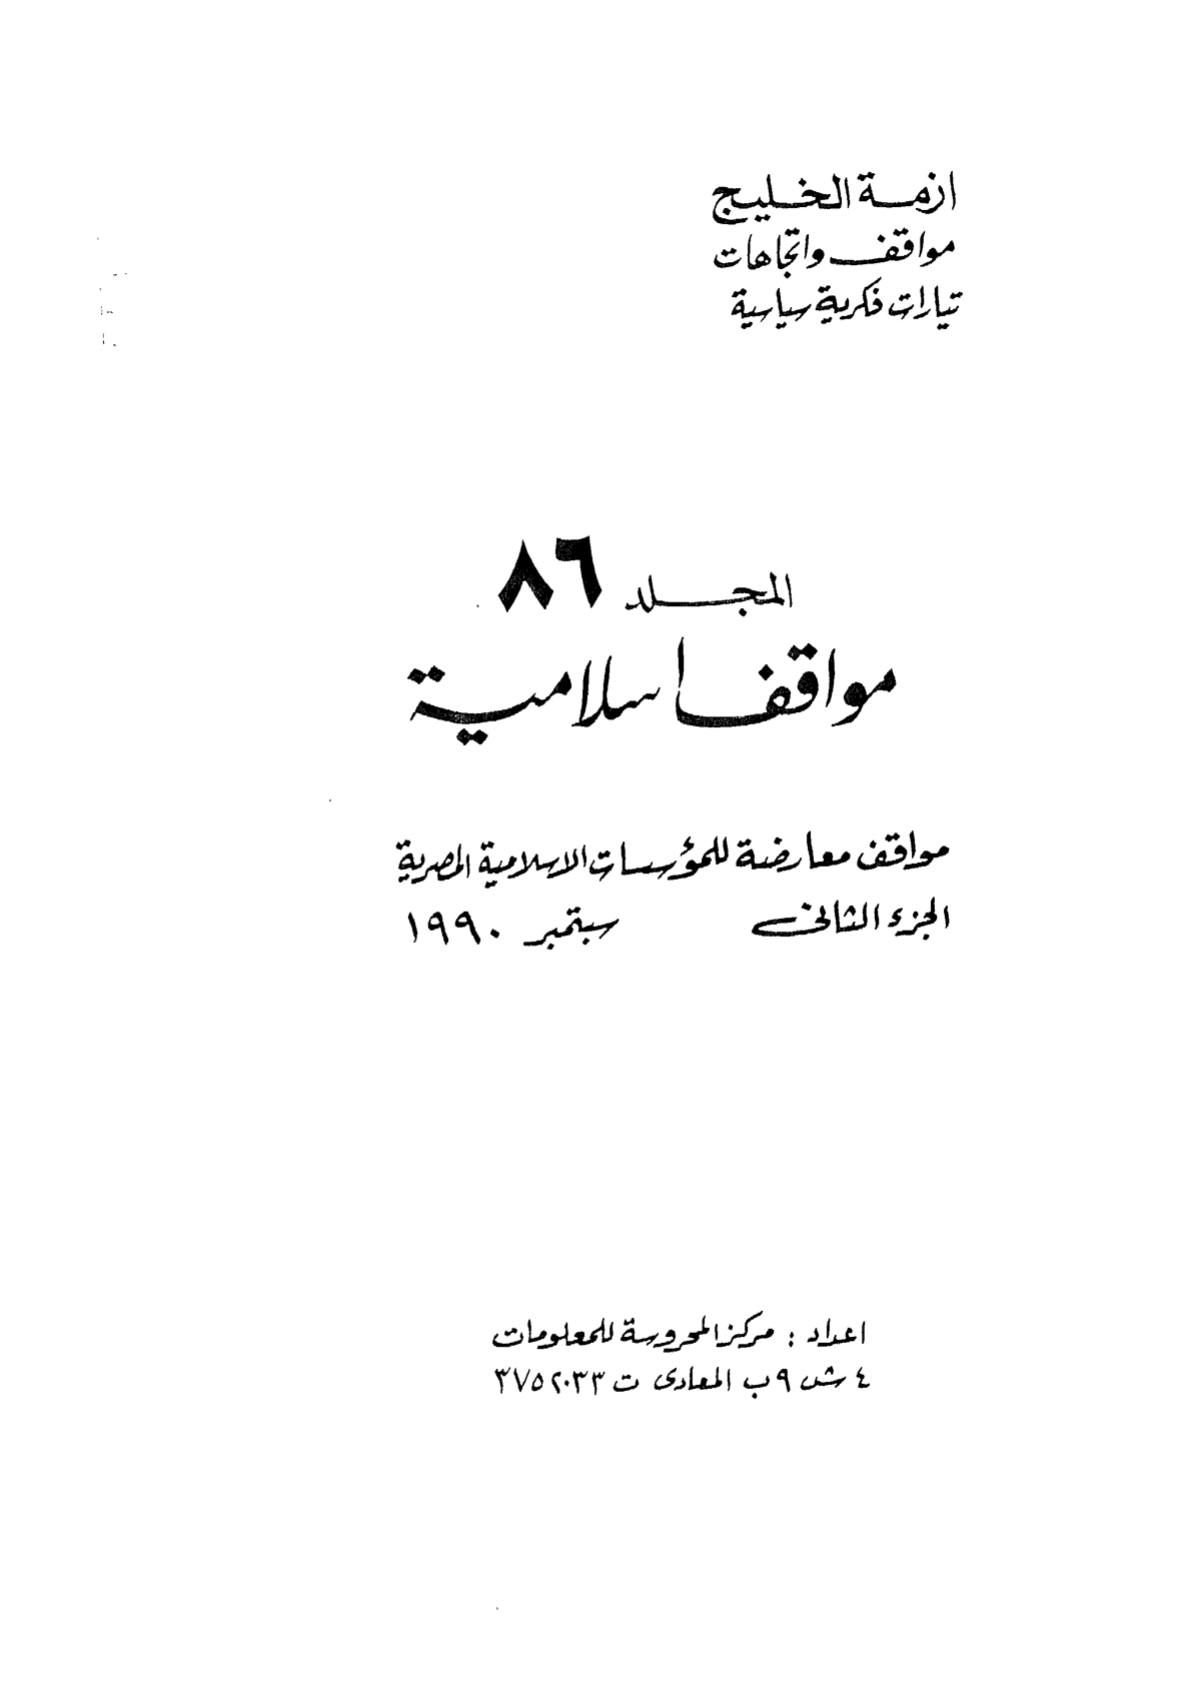 ازمة الخليج
مواقف واتجاهات
تيارات فكرية سياسية
المجلد ٨٦
مواقف اسلامية
مواقف معارضة للمؤسسات الاسلامية المصرية
الجزء الثانى سبتمبر ١٩٩٠
اعداد : مركز المحروسة للمعلومات
٤ ش ٩ب المعادى ت ٣٧٥٢٠٣٣